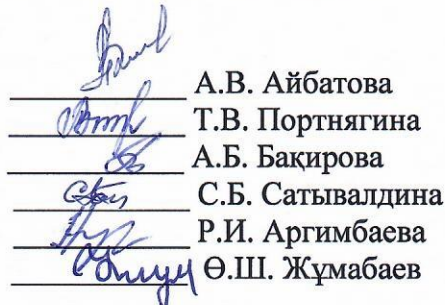 А.В. Айбатова
Т.В. Портнягина
А.Б. Бақирова
С.Б. Сатывалдина
Р.И. Аргимбаева
Ө.Ш. Жұмабаев